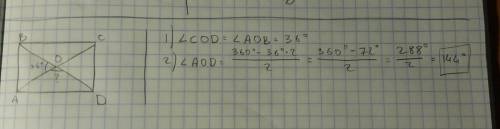 B C
O
36° ?
A D
1) ∠COD = ∠AOB = 36°
2) ∠AOD = (360° - 36° · 2)/2 = (360° - 72°)/2 = 288°/2 = 144°